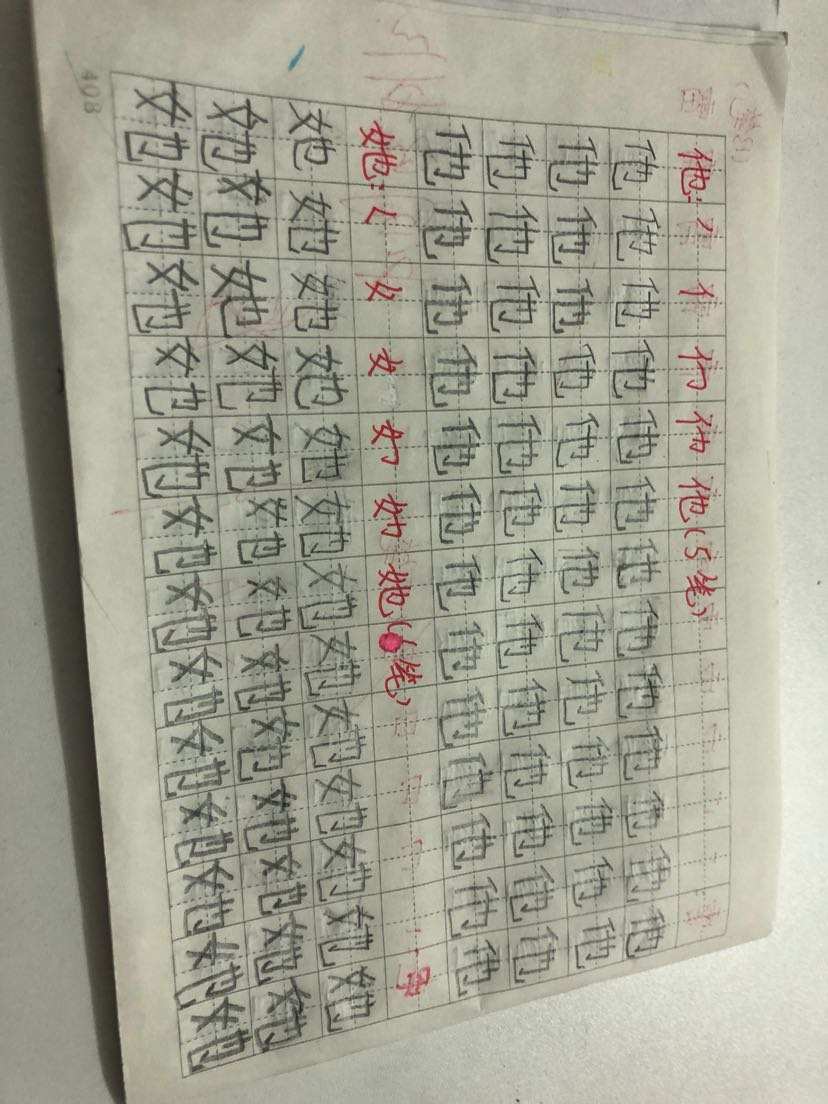 他: 丿 亻 他(5笔)
他他他他他他他他他他他他他
他他他他他他他他他他他他他
他他他他他他他他他他他他他
他他他他他他他他他他他他他
她: ㄑ 女 她(6笔)
她她她她她她她她她她她她她
她她她她她她她她她她她她她
她她她她她她她她她她她她她
408